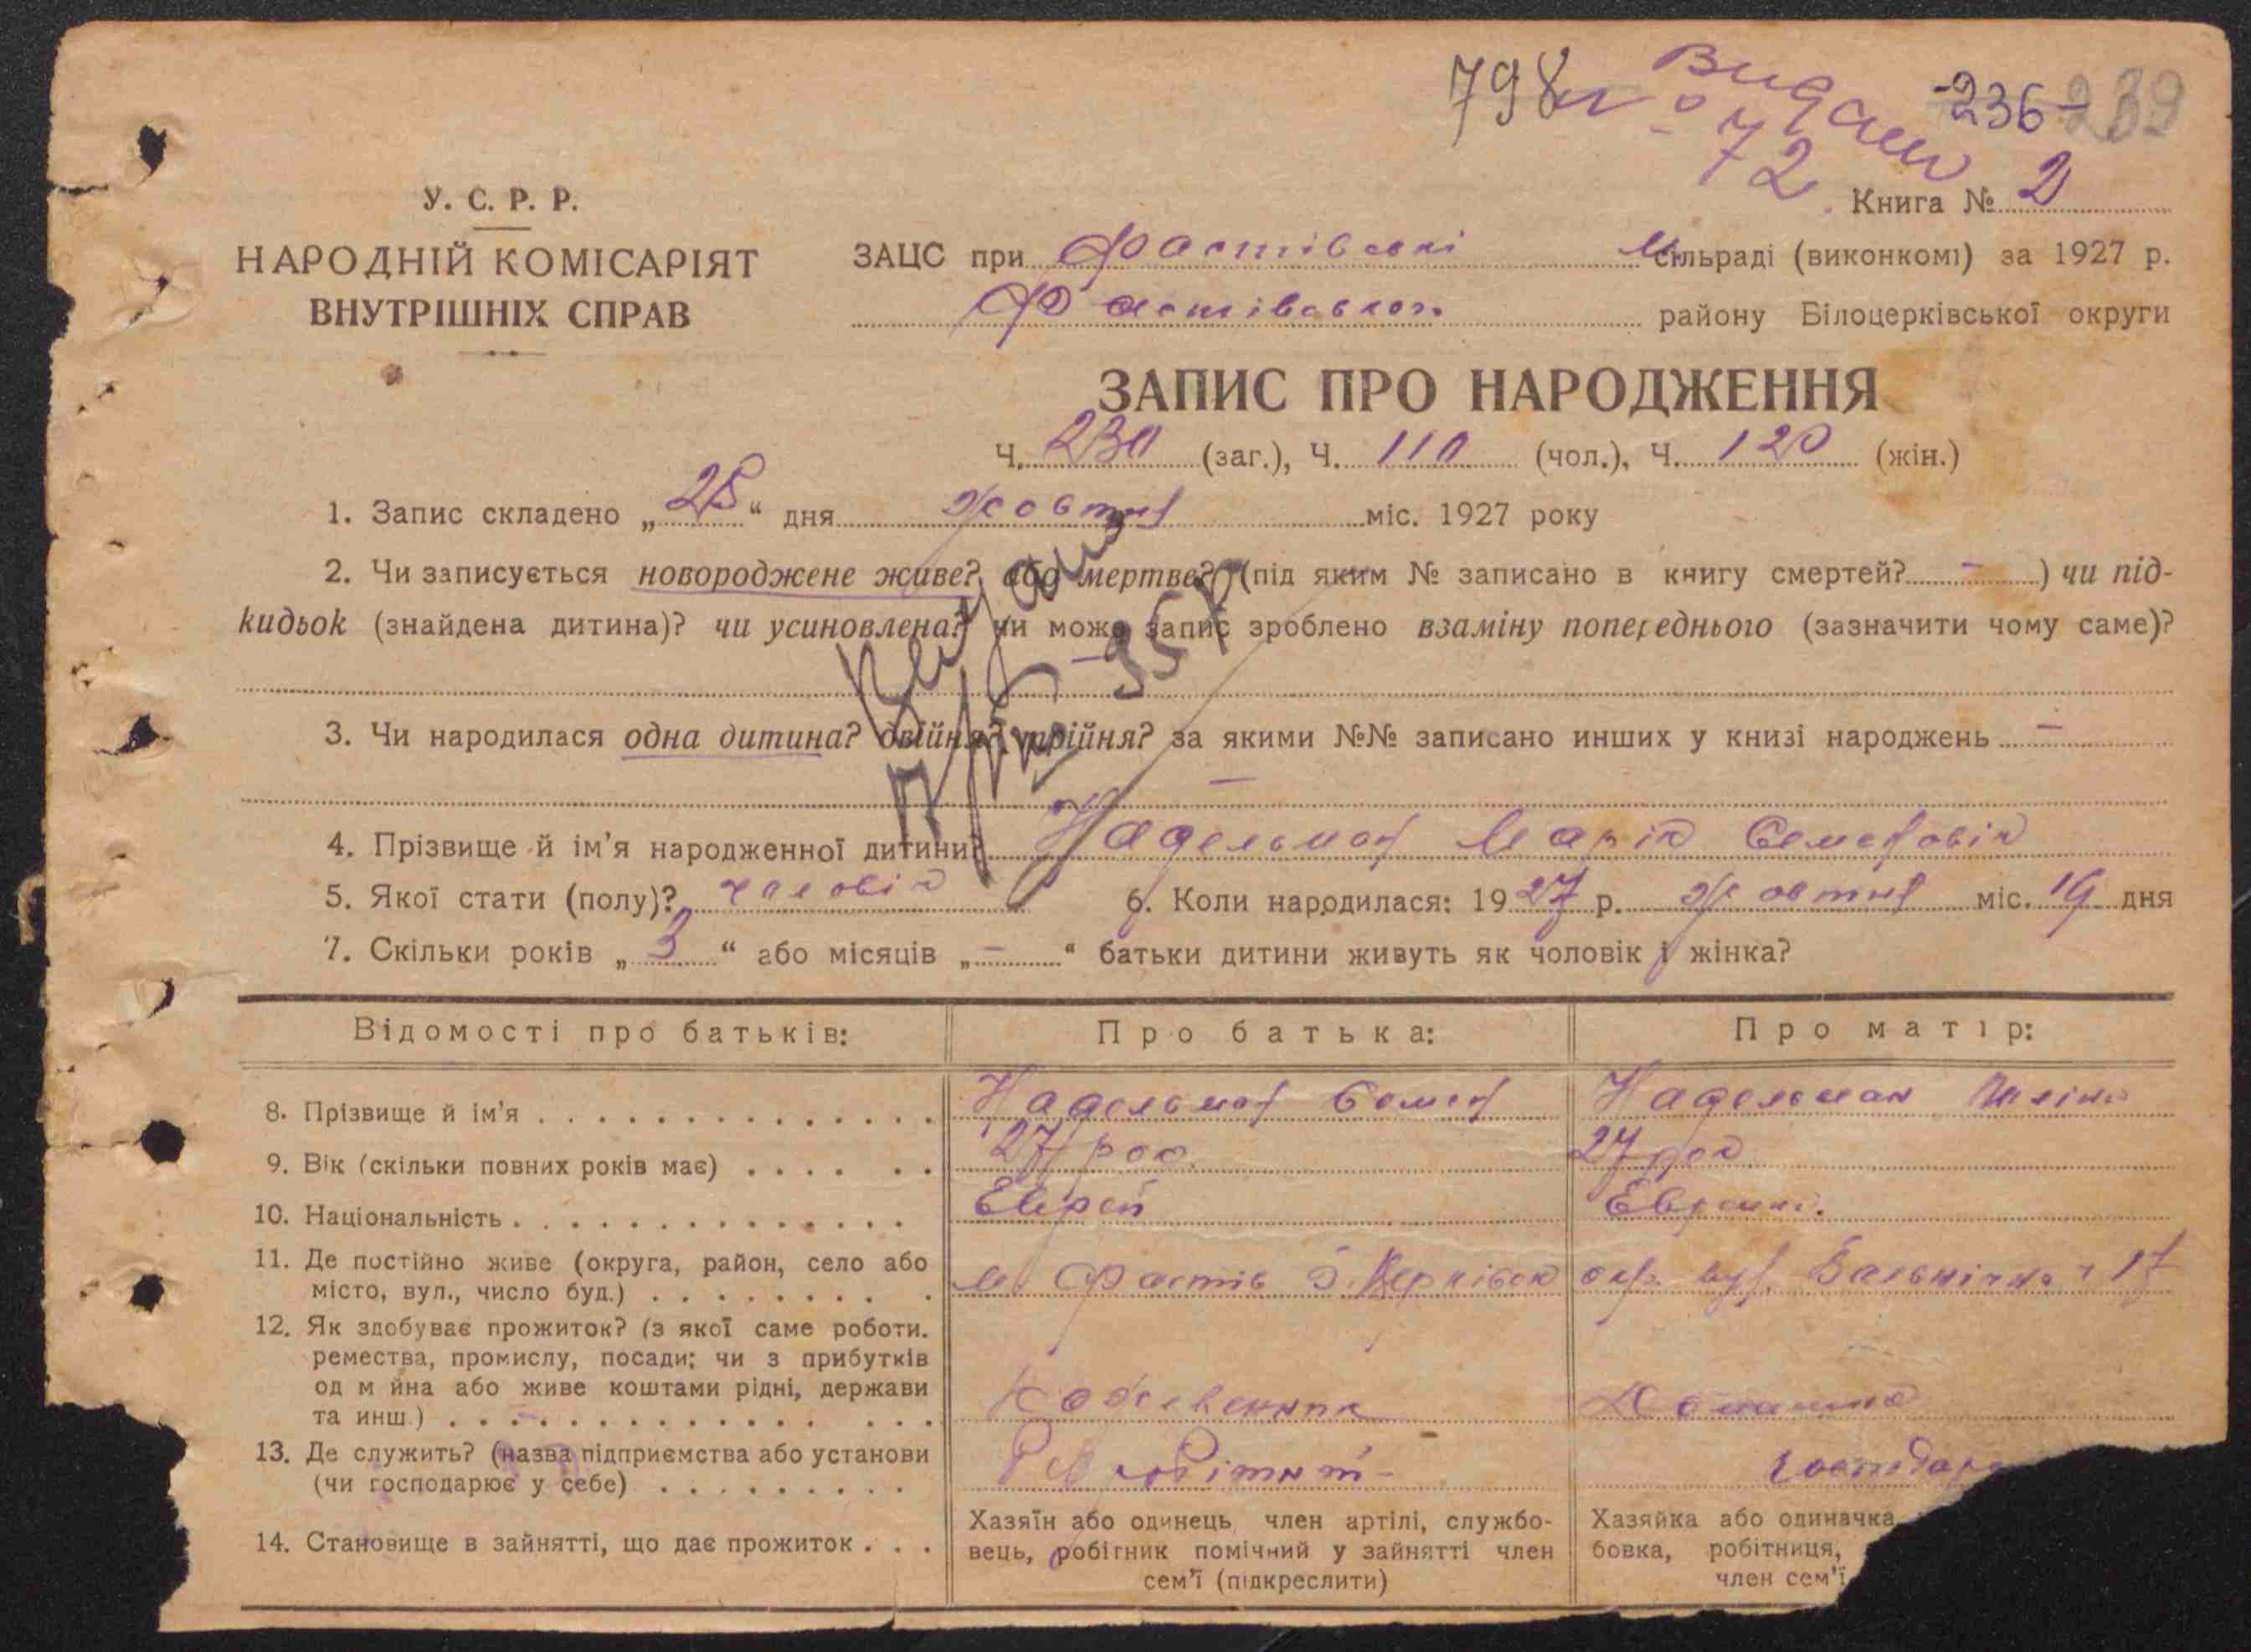 798
Видан
72
236
239
У. С. Р. Р.
НАРОДНІЙ КОМІСАРІЯТ
ВНУТРІШНІХ СПРАВ
Книга № 2
ЗАЦС при Фастівські сільраді (виконкомі) за 1927 р.
Фастівського району Білоцерківської округи
ЗАПИС ПРО НАРОДЖЕННЯ
Ч. 230 (заг.), Ч. 110 (чол.), Ч. 120 (жін.)
1. Запис складено „25“ дня жовтня міс. 1927 року
2. Чи записується новороджене живе? або мертве? (під яким № записано в книгу смертей? – ) чи під-
кидьок (знайдена дитина)? чи усиновлена? чи може запис зроблено взаміну попереднього (зазначити чому саме)?
–
3. Чи народилася одна дитина? двійня? трійня? за якими №№ записано инших у книзі народжень –
–
4. Прізвище й ім'я народженної дитини? Надельман Марік Семеновік
5. Якої стати (полу)? чоловік 6. Коли народилася: 1927 р. жовтня міс. 19 дня
7. Скільки років „3“ або місяців „–“ батьки дитини живуть як чоловік і жінка?
Відомості про батьків: Про батька: Про матір:
8. Прізвище й ім'я Надельман Семен Надельман
9. Вік (скільки повних років має) 27 рок 27 рок
10. Національність Еврей Еврейка
11. Де постійно живе (округа, район, село або
місто, вул., число буд.) м Фастів Б. Церківськ окр. вул. 17
12. Як здобуває прожиток? (з якої саме роботи.
ремества, промислу, посади; чи з прибутків
од м йна або живе коштами рідні, держави
та инш.) Кожевенник Домашня
13. Де служить? (назва підприємства або установи господар
(чи господарює у себе)
14. Становище в зайнятті, що дає прожиток
Хазяїн або одинець член артілі, службо-
вець, робітник помічний у зайнятті член
сем'ї (підкреслити)
Хазяйка або одиначка
бовка, робітниця,
член сем'ї